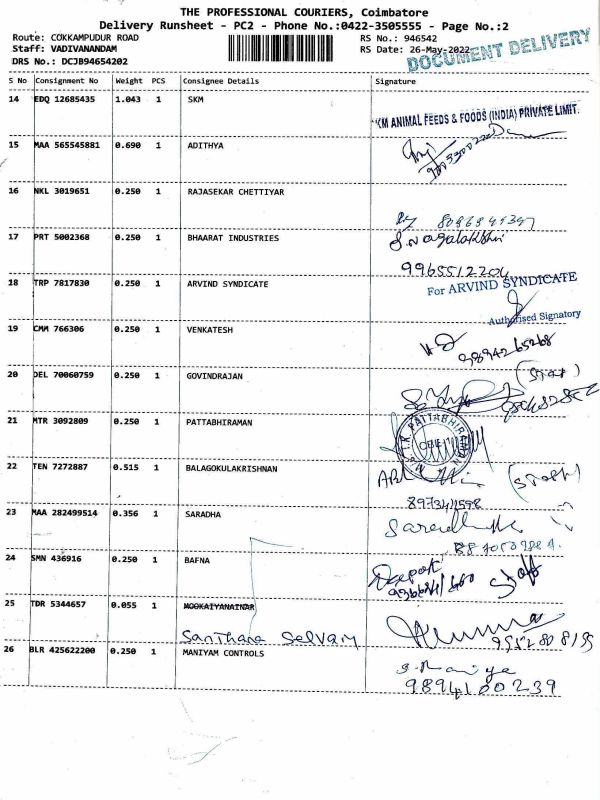 THE PROFESSIONAL COURIERS, Coimbatore
Delivery Runsheet - PC2 - Phone No.:0422-3505555 - Page No.:2
Route: COKKAMPUDUR ROAD RS No.: 946542
Staff: VADIVANANDAM RS Date: 26-May-2022
DOCUMENT DELIVERY
DRS No.: DCJB94654202
S No Consignment No Weight PCS Consignee Details Signature
14 EDQ 12685435 1.043 1 SKM
KM ANIMAL FEEDS & FOODS (INDIA) PRIVATE LIMIT.
15 MAA 565545881 0.690 1 ADITHYA
16 NKL 3019651 0.250 1 RAJASEKAR CHETTIYAR
17 PRT 5002368 0.250 1 BHAARAT INDUSTRIES
9965512204
18 TRP 7817830 0.250 1 ARVIND SYNDICATE
For ARVIND SYNDICATE
Authorised Signatory
19 CMM 766306 0.250 1 VENKATESH
9894265268
20 DEL 70060759 0.250 1 GOVINDRAJAN
21 MTR 3092809 0.250 1 PATTABHIRAMAN
22 TEN 7272887 0.515 1 BALAGOKULAKRISHNAN
23 MAA 282499514 0.356 1 SARADHA
24 SMN 436916 0.250 1 BAFNA
Deepak
25 TDR 5344657 0.055 1 MOOKAIYANAINAR
Santhana Selvam
9952808195
26 BLR 425622200 0.250 1 MANIYAM CONTROLS
9894100239